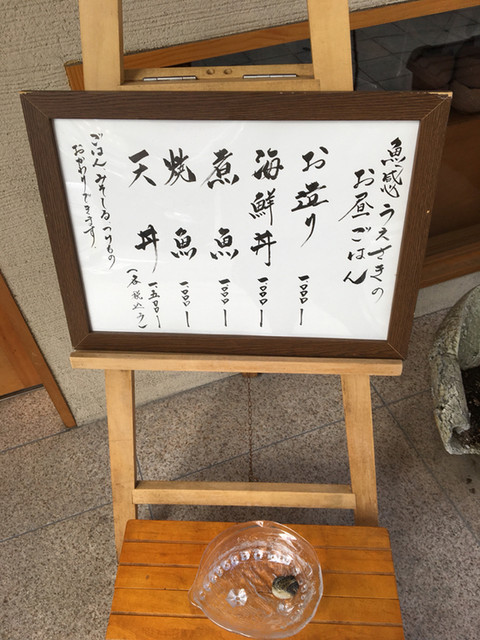 魚感 うえさきの
お昼ごはん
お造り 一、〇〇〇ー
海鮮丼 一、〇〇〇ー
煮魚 一、〇〇〇ー
焼魚 一、〇〇〇ー
天丼 一、五〇〇ー
(各税込み)
ごはん みそしる つけもの
おかわりできます